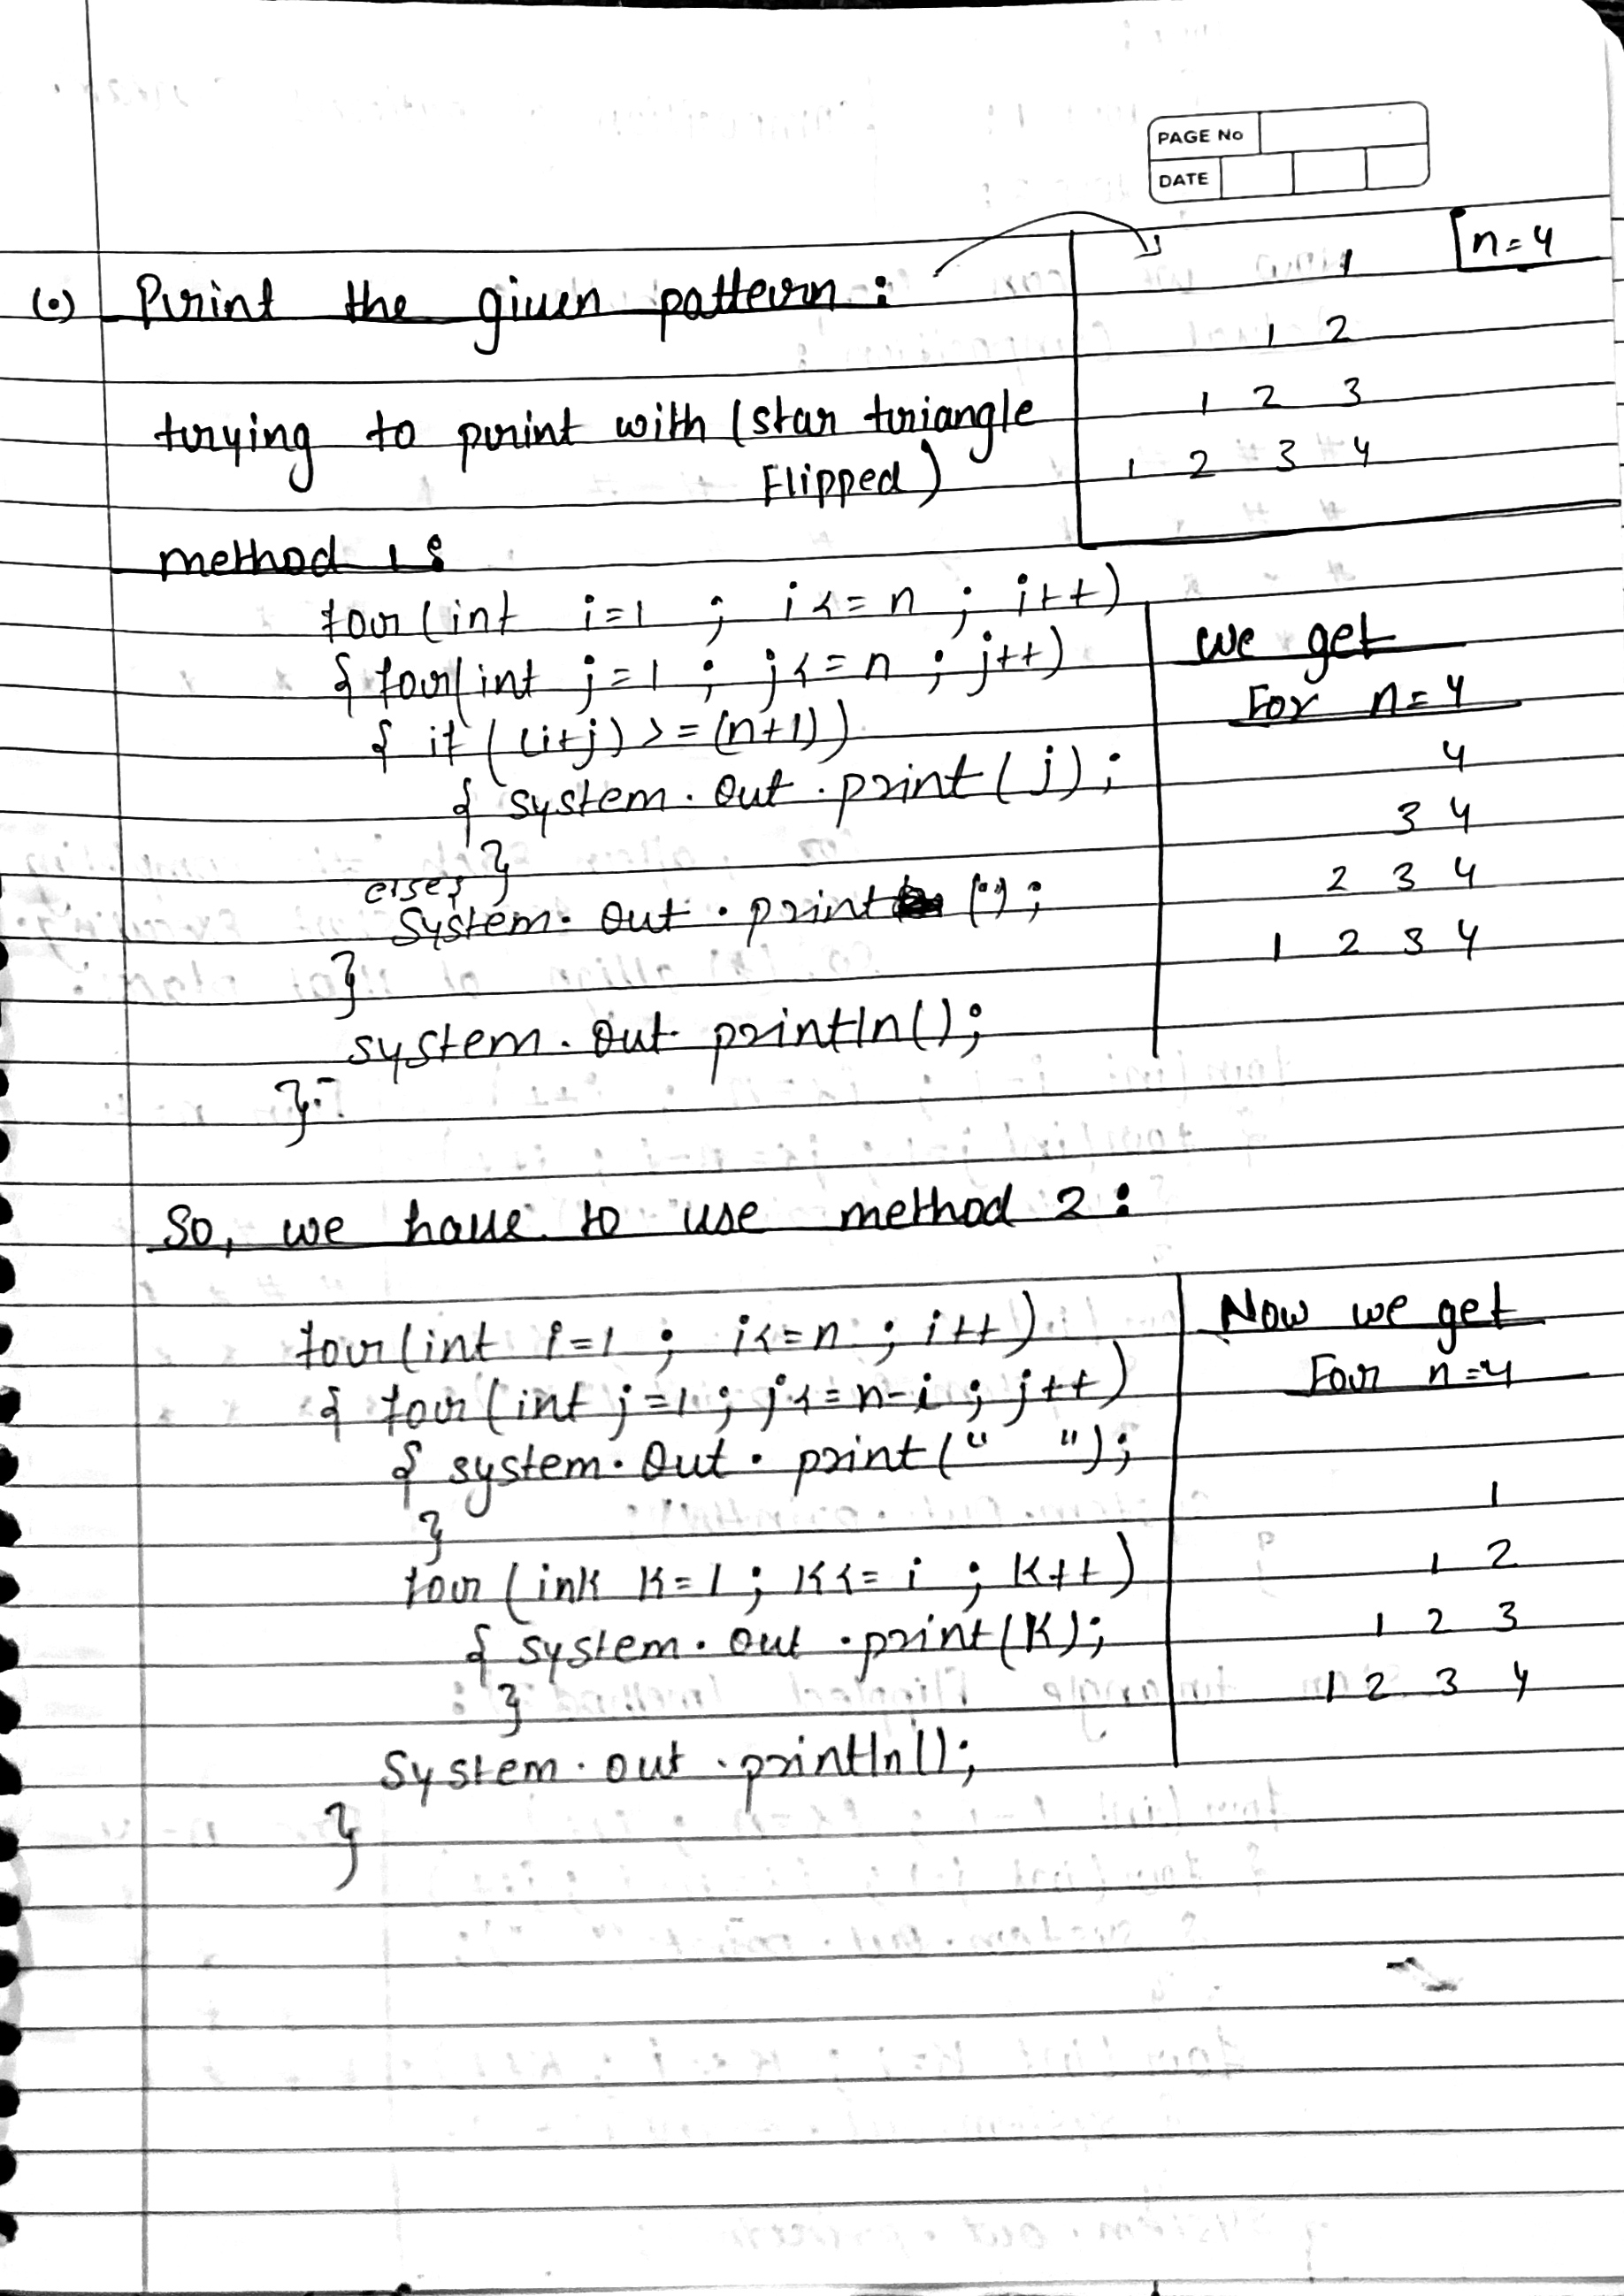 PAGE No
DATE
(•) Print the given pattern :
1 [n=4
1 2
1 2 3
1 2 3 4
trying to print with (star triangle
Flipped)
method 1 :
for(int i=1 ; i<=n ; i++)
{ for(int j=1 ; j<=n ; j++)
{ if ( (i+j) >= (n+1))
{ system. out . print ( j) ;
}
else {
System. out . print (" ") ;
}
system. out. println();
} :-
we get
For n=4
4
3 4
2 3 4
1 2 3 4
So, we have to use method 2 :
for(int i=1 ; i<=n ; i++)
{ for (int j=1 ; j<=n-i ; j++)
{ system. Out . print (" ");
}
for (ink k=1 ; k<= i ; k++)
{ system. out . print (k);
}
System. out . println();
}
Now we get
For n=4
1
1 2
1 2 3
1 2 3 4